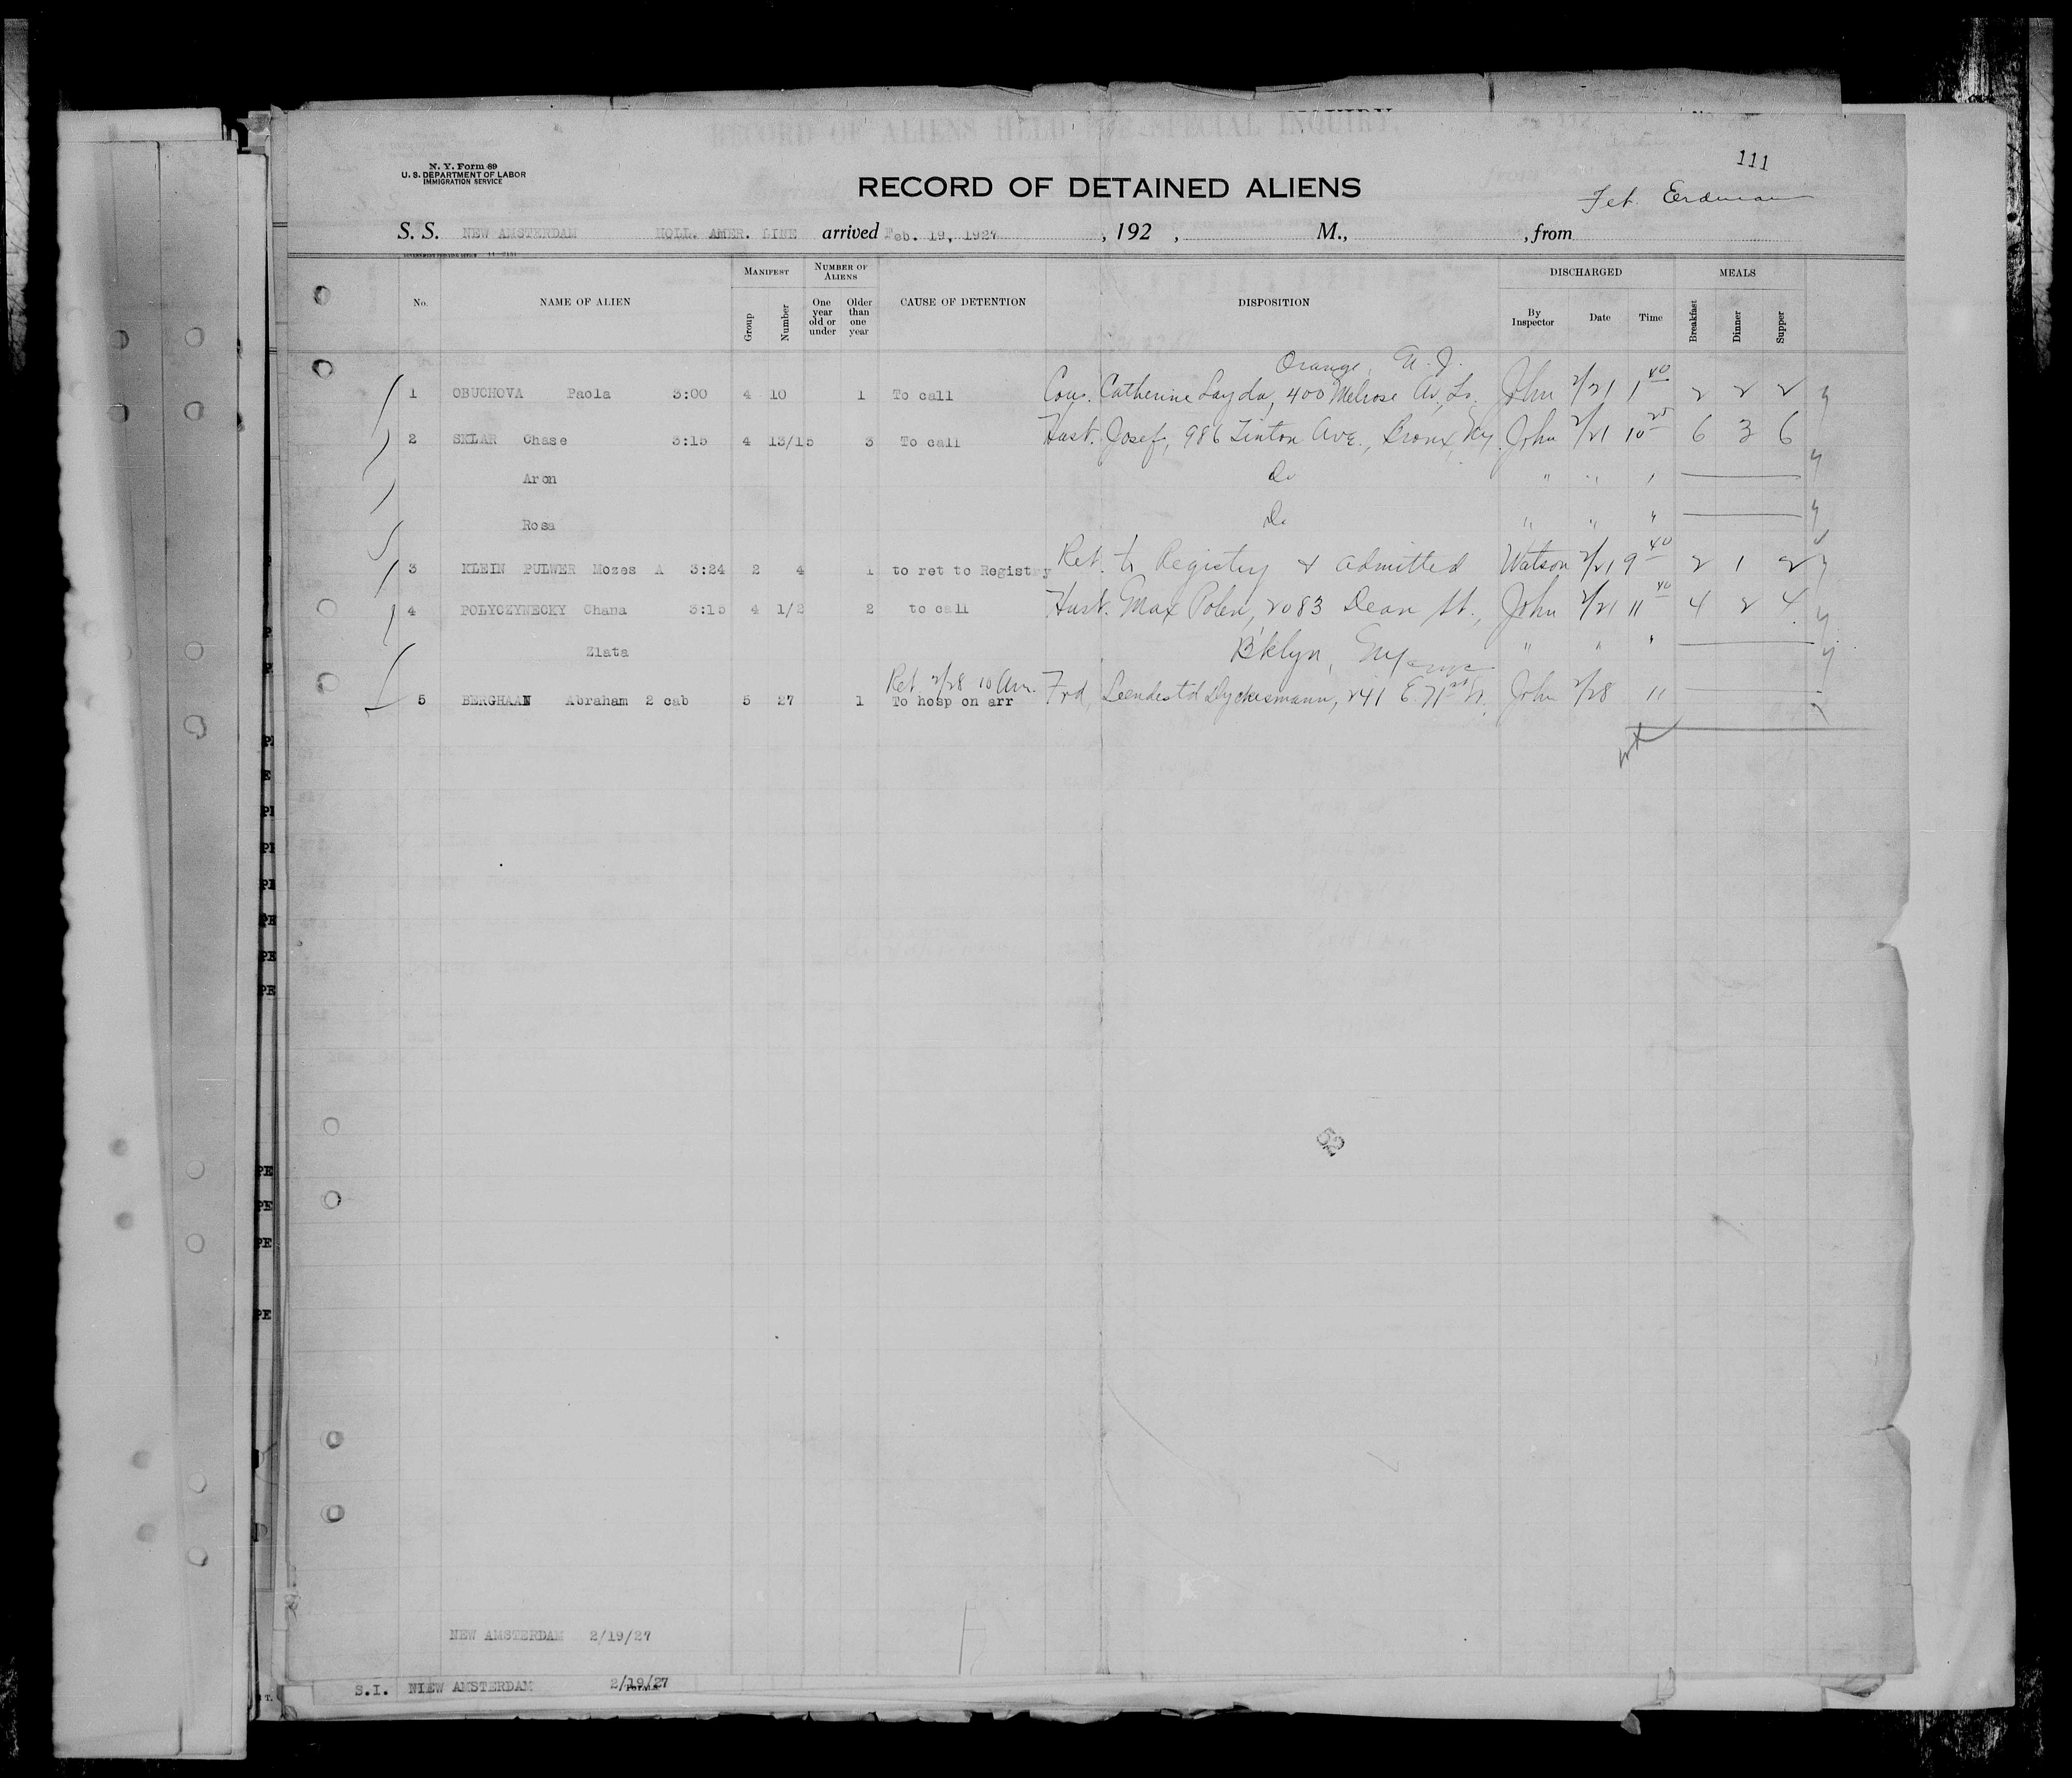 RECORD OF ALIENS HELD FOR SPECIAL INQUIRY.
111
N. Y. Form 89
U. S. DEPARTMENT OF LABOR
IMMIGRATION SERVICE
RECORD OF DETAINED ALIENS
Erdman
S. S. NEW AMSTERDAM HOLL. AMER. LINE arrived Feb. 19, 1927 , 192 , M., , from
No. NAME OF ALIEN MANIFEST NUMBER OF ALIENS CAUSE OF DETENTION DISPOSITION DISCHARGED MEALS
Group Number One year old or under Older than one year By Inspector Date Time Breakfast Dinner Supper
Orange, N. J.
1 OBUCHOVA Paola 3:00 4 10 1 To call Cous. Catherine Layda, 400 Melrose Av, John 2/21 1 40 2 2 2
2 SKLAR Chase 3:15 4 13/15 3 To call Husb. Josef, 986 Tinton Ave., Bronx, Ny. John 2/21 10 25 6 3 6
Aron Do " " "
Rosa Do " " "
3 KLEIN PULWER Mozes A 3:24 2 4 1 to ret to Registry Ret. to Registry & admitted Watson 2/21 9 40 2 1 2
4 POLYCZYNECKY Chana 3:15 4 1/2 2 to call Husb. Max Polen, 2083 Dean St., John 2/21 11 40 4 2 4
Zlata B'klyn, Ny " " "
Ret 2/28 10 Am.
5 BERGHAAN Abraham 2 cab 5 27 1 To hosp on arr Frd, 241 E. 71st St. John 2/28 11
52
NEW AMSTERDAM 2/19/27
S.I. NIEW AMSTERDAM 2/19/27